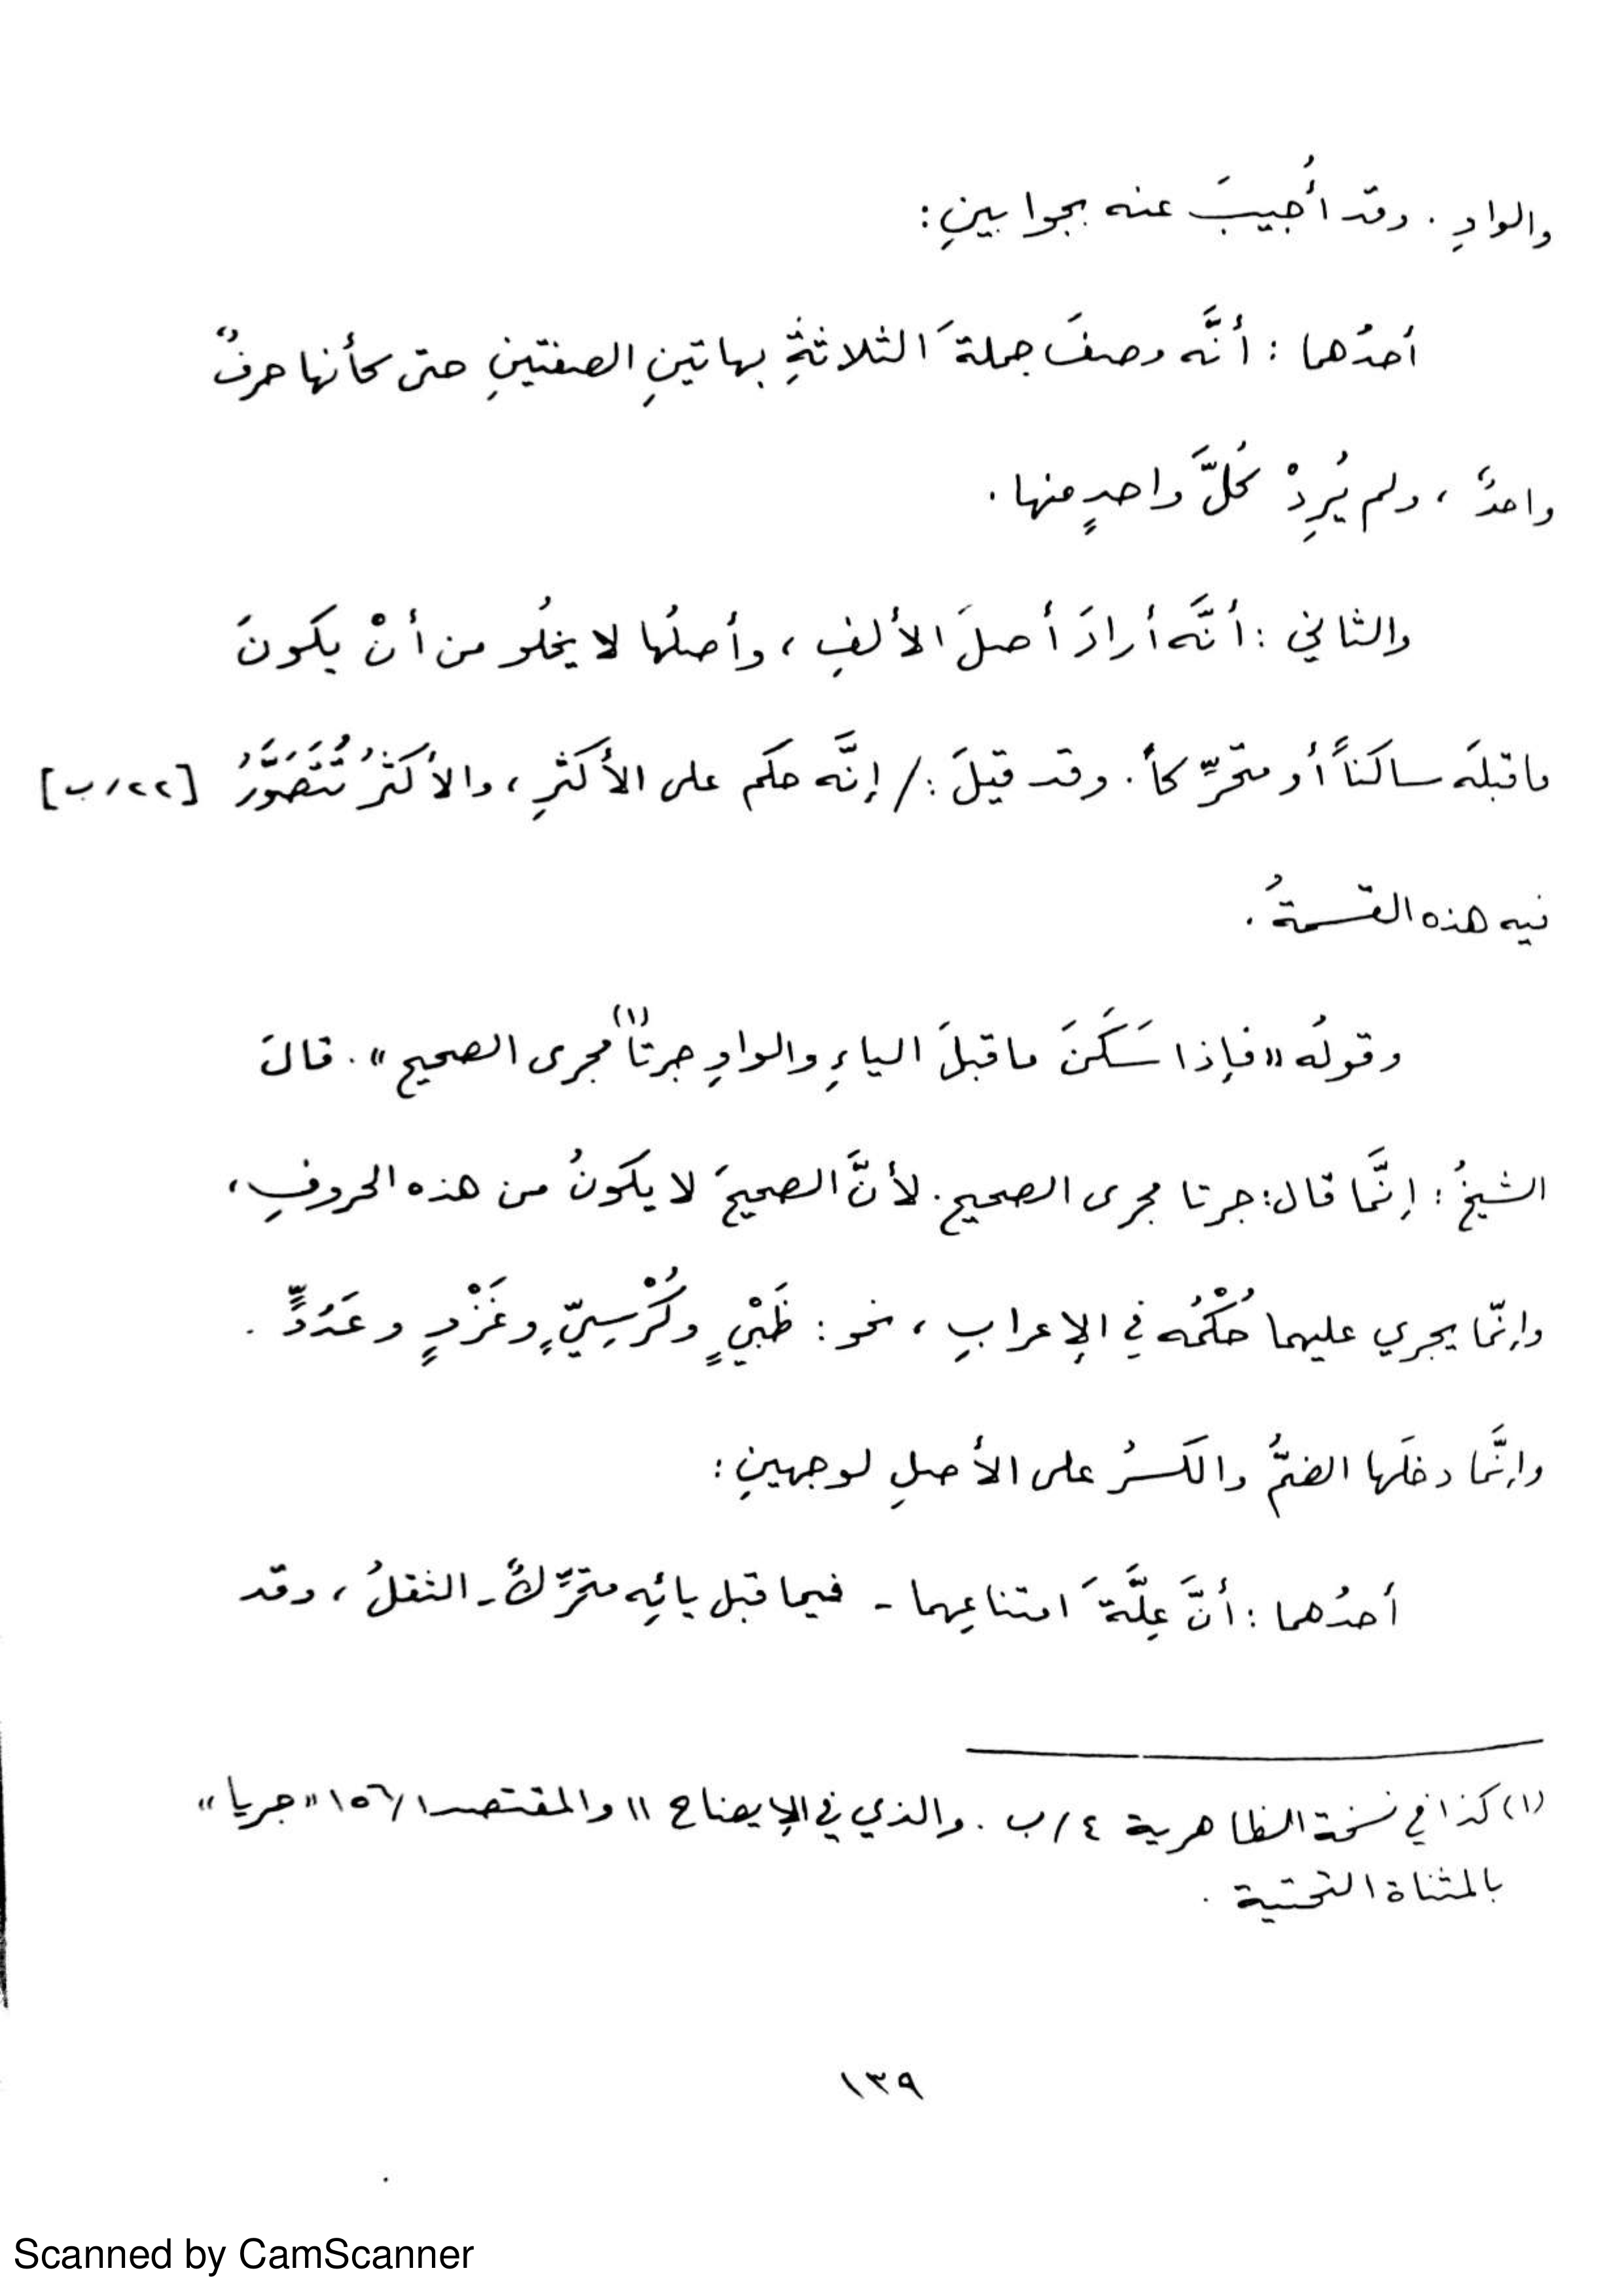 والواوِ . وقد أُجيبَ عنه بجوابينِ :
أحدُهما : أنَّه وصفَ جملةَ الثلاثةِ بهاتينِ الصفتينِ حتى كأنها حرفٌ
واحدٌ ، ولم يُرِدْ كُلَّ واحدٍ منها .
والثاني : أنَّه أرادَ أصلَ الألفِ ، وأصلُها لا يخلُو من أنْ يكونَ
ماقبلَه ساكناً أو متحرِّكاً . وقد قيلَ : / إنَّه حكم على الأكثرِ ، والأكثرُ تُتَصَوَّرُ [٢٢/ب]
فيه هذه القسمةُ .
وقولُه «فإذا سَكَنَ ماقبلَ الياءِ والواوِ جرتا(١) مجرى الصحيح» . قالَ
الشيخُ : إنَّما قال : جرتا مجرى الصحيح . لأنَّ الصحيحَ لا يكونُ من هذه الحروفِ ،
وإنّما يجري عليهما حُكْمُه في الإعرابِ ، نحو : ظَبْيٍ وكُرْسِيٍّ وغَزْوٍ وعَدُوٍّ .
وإنَّما دخلَها الضمُّ والكسرُ على الأصلِ لوجهينِ :
أحدُهما : أنَّ عِلَّةَ امتناعِهما - فيما قبل يائِه متحرِّكٌ - الثقلُ ، وقد
(١) كذا في نسخة الظاهرية ٤/ب . والذي في الإيضاح ١١ والمقتصد ١/١٥٦ «جريا»
بالمثناة التحتية .
١٣٩
Scanned by CamScanner